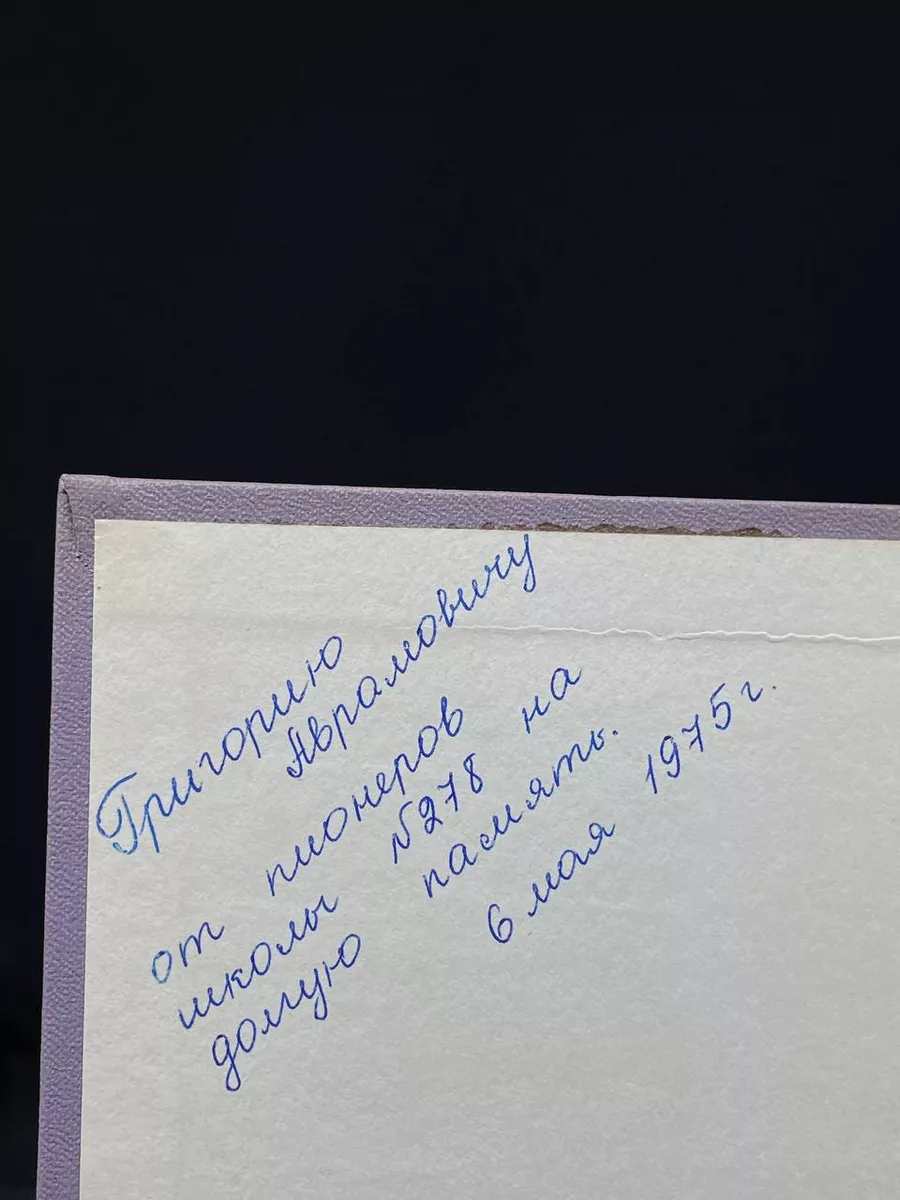 Григорию
Аврамовичу
от пионеров
школы №278 на
долгую память.
6 мая 1975г.